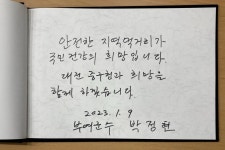 안전한 지역먹거리가
국민 건강의 희망입니다.
대전 중구청과 희망을
함께 하겠습니다.
2023. 1. 9
부여군수 박정현